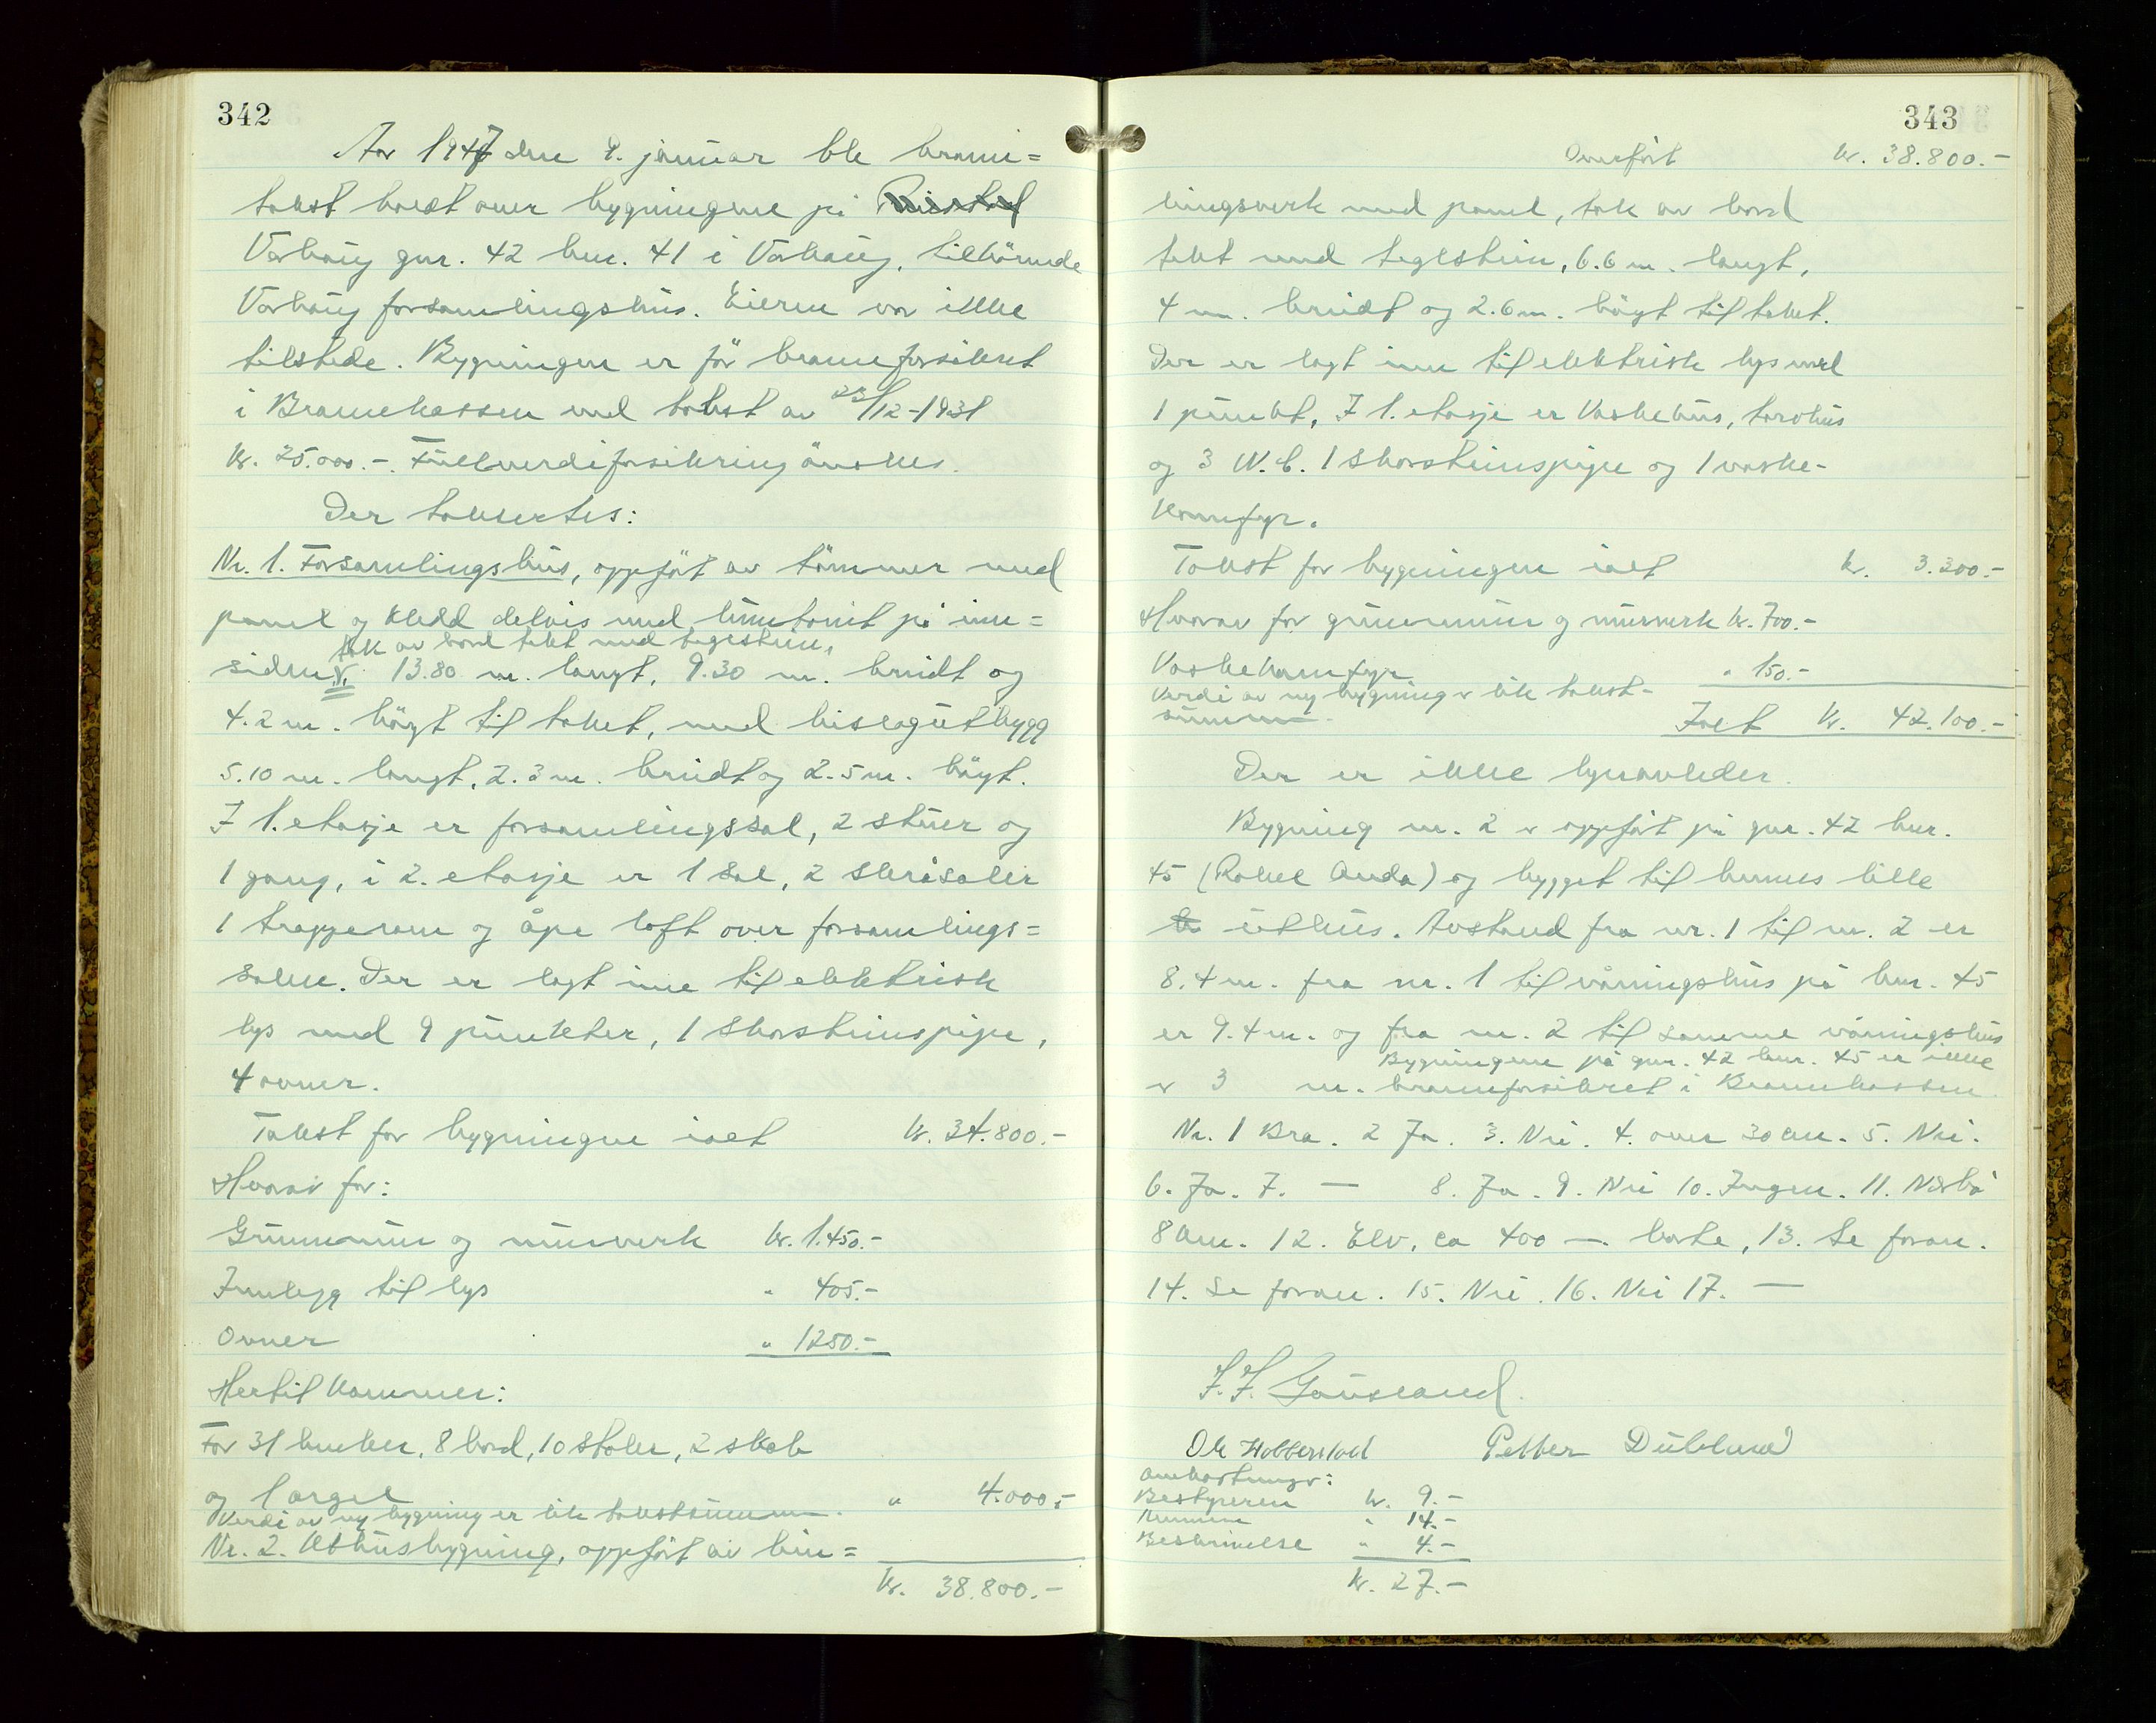 342
Aar 1947 den 9. januar ble brann=
takst holdt over bygningene på
Varhaug gnr. 42 bnr. 41 i Varhaug, tilhörende
Varhaug forsamlingshus. Eieren var ikke
tilstede. Bygningen er för brannforsikret
i Brannekassen med takst av 23/12-1931
kr. 25.000.-. Fullverdiforsikring önskes.
Der taksertes:
Nr. 1. Forsamlingshus, oppfört av tömmer med
panel og kledd delvis med huntonit på inn=
tak av bord tekt med teglstein,
siden, 13.80 m. langt, 9.30 m. breidt og
4.2 m. höyt til taket, med bislagutbygg
5.10 m. langt, 2.3 m. breidt og 2.5 m. höyt.
I 1. etasje er forsamlingssal, 2 stuer og
1 gang, i 2. etasje er 1 sal, 2 skråsaler
1 trapperom og åpe loft over forsamlings=
salen. Der er lagt inn til elektrisk
lys med 9 punkter, 1 skorsteinspipe,
4 ovner.
Takst for bygningen ialt kr. 34.800.-
Hvorav for:
Grunnmur og murverk kr. 1.450.-
Innlegg til lys " 405.-
Ovner " 1250.-
Hertil kommer:
For 31 benker, 8 bord, 10 stoler, 2 skab
og 1 orgel " 4.000.-
Verdi av ny bygning er lik takstsummen.
Nr. 2. Uthusbygning, oppfört av bin=
kr. 38.800.-
343
Overfört kr. 38.800.-
dingsverk med panel, tak av bord
tekt med teglstein, 6.6 m. langt,
4 m. breidt og 2.6 m. höyt til taket.
Der er lagt inn til elektrisk lys med
1 punkt, I 1. etasje er vaskehus, torvhus
og 3 W.C. 1 skorsteinspipe og 1 vaske-
komfyr.
Takst for bygningen ialt kr. 3.300.-
Hvorav for grunnmur og murverk kr. 700.-
Vaskekomfyr " 150.-
Verdi av ny bygning er lik takst-
summen.
Ialt kr. 42.100.-
Der er ikke lynavleder.
Bygning nr. 2 er oppfört på gnr. 42 bnr.
45 (Rakel Anda) og bygget til hennes lille
uthus. Avstand fra nr. 1 til nr. 2 er
8.4 m. fra nr. 1 til våningshus på bnr. 45
er 9.4 m. og fra nr. 2 til samme våningshus
Bygningene på gnr. 42 bnr. 45 er ikke
er 3 m. brannforsikret i Brannkassen.
Nr. 1 Bra. 2 Ja. 3. Nei. 4. over 30 cm. 5. Nei.
6. Ja. 7. — 8. Ja. 9. Nei 10. Ingen. 11. Nærbö
8 km. 12. Elv, ca 400 m. borte, 13. Se foran.
14. Se foran. 15. Nei. 16. Nei 17. —
J. J. Gausland.
Ole Hobberstad Petter Dubland
Omkostninger:
Bestyreren kr. 9.-
Mennene " 14.-
Beskrivelse " 4.-
kr. 27.-